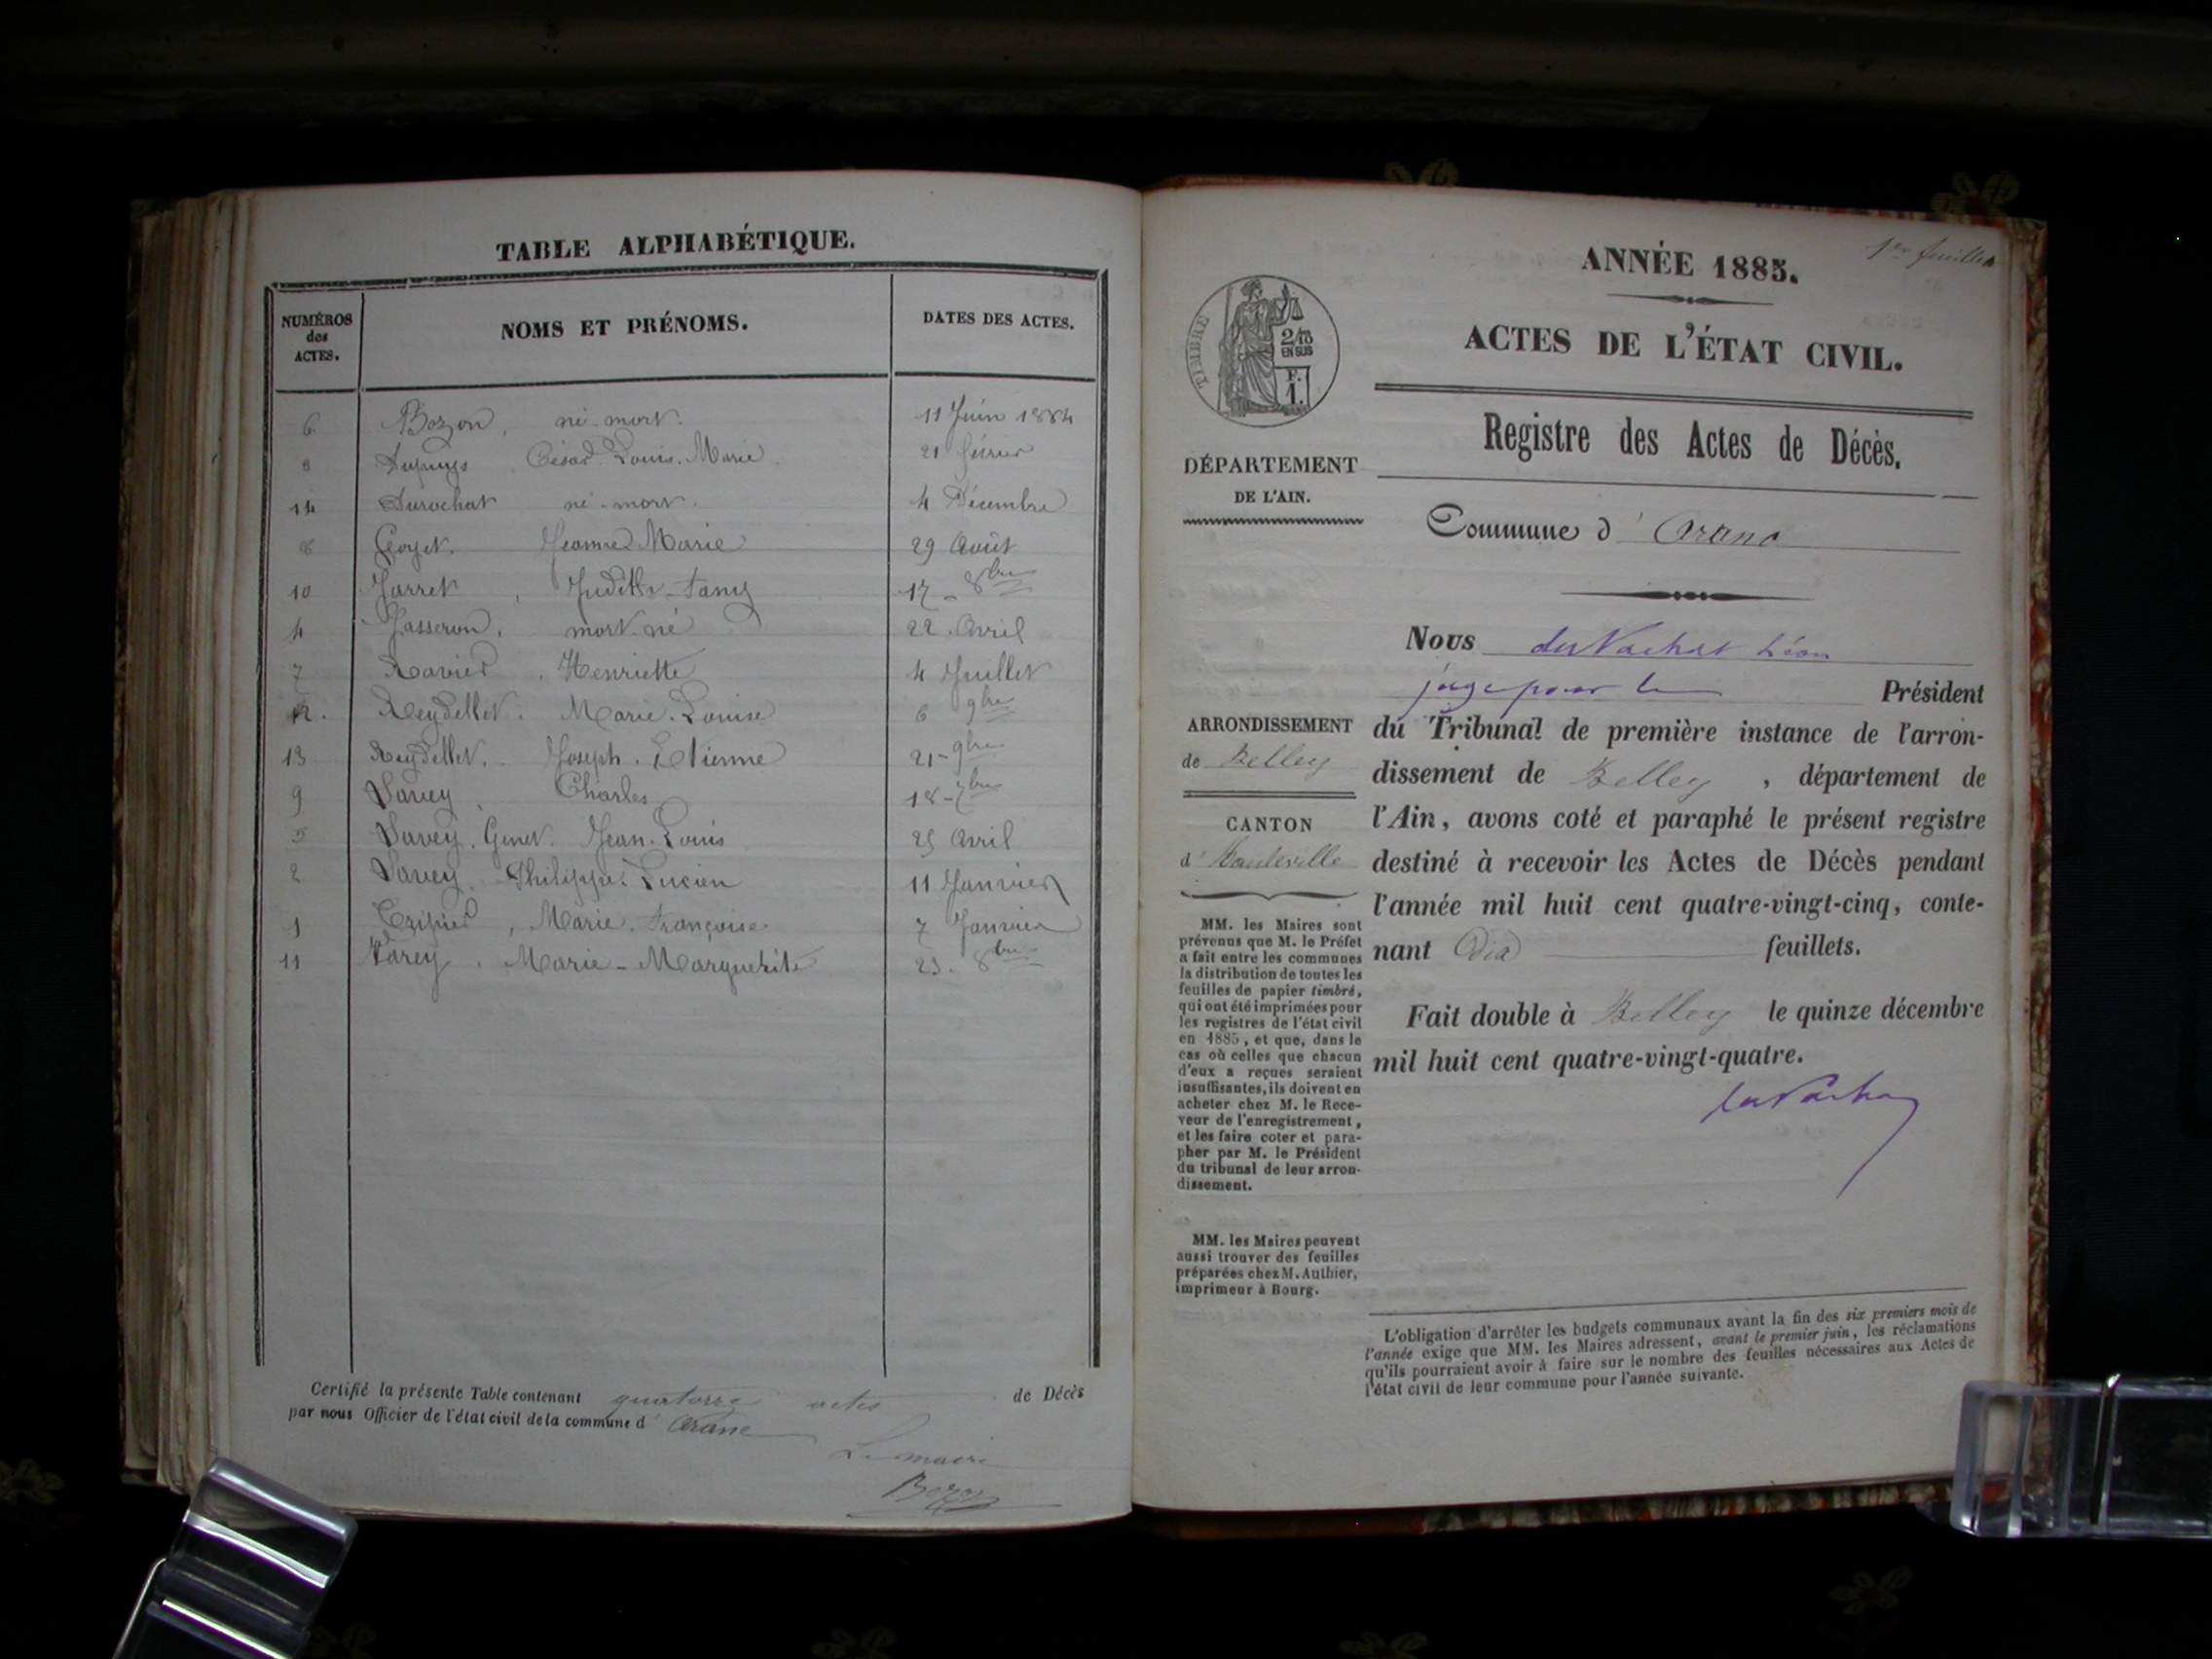 TABLE ALPHABÉTIQUE.
NUMÉROS des ACTES. NOMS ET PRÉNOMS. DATES DES ACTES.
6 Bozon, né-mort. 11 Juin 1884
3 Dupuys César Louis. Marie. 21 février
14 Durochat né-mort. 4 Décembre
8 Goyet. Jeanne Marie 29 Août
10 Jarret, Judith-Fany 17-8bre
4 Jasseron, mort-né 22 Avril
7 Ravier, Henriette 4 Juillet
12. Reydellet. Marie-Louise 6 9bre
13 Reydellet. Joseph. Etienne 21-9bre
9 Savey, Charles 18-7bre
5 Savey, Genet. Jean-Louis 25 Avril
2 Savey, Philippe. Lucien 11 Janvier
1 Tripier, Marie. Françoise 7 Janvier
11 Varey, Marie-Marguerite 25. 8bre
Certifié la présente Table contenant quatorze actes de Décès
par nous Officier de l'état civil de la commune d'Arane
Le maire
Bozon
1er feuillet
ANNÉE 1885.
ACTES DE L'ÉTAT CIVIL.
TIMBRE
2/10
EN SUS
F.
1.
Registre des Actes de Décès.
DÉPARTEMENT
DE L'AIN.
Commune d'Arane
Nous du Vachat Léon
juge pour le Président
du Tribunal de première instance de l'arron-
dissement de Belley, département de
l'Ain, avons coté et paraphé le présent registre
destiné à recevoir les Actes de Décès pendant
l'année mil huit cent quatre-vingt-cinq, conte-
nant Dix feuillets.
Fait double à Belley le quinze décembre
mil huit cent quatre-vingt-quatre.
du Vachat
ARRONDISSEMENT
de Belley
CANTON
d'Hauteville
MM. les Maires sont
prévenus que M. le Préfet
a fait entre les communes
la distribution de toutes les
feuilles de papier timbré,
qui ont été imprimées pour
les registres de l'état civil
en 1885, et que, dans le
cas où celles que chacun
d'eux a reçues seraient
insuffisantes, ils doivent en
acheter chez M. le Rece-
veur de l'enregistrement,
et les faire coter et para-
pher par M. le Président
du tribunal de leur arron-
dissement.
MM. les Maires peuvent
aussi trouver des feuilles
préparées chez M. Authier,
imprimeur à Bourg.
L'obligation d'arrêter les budgets communaux avant la fin des six premiers mois de
l'année exige que MM. les Maires adressent, avant le premier juin, les réclamations
qu'ils pourraient avoir à faire sur le nombre des feuilles nécessaires aux Actes de
l'état civil de leur commune pour l'année suivante.